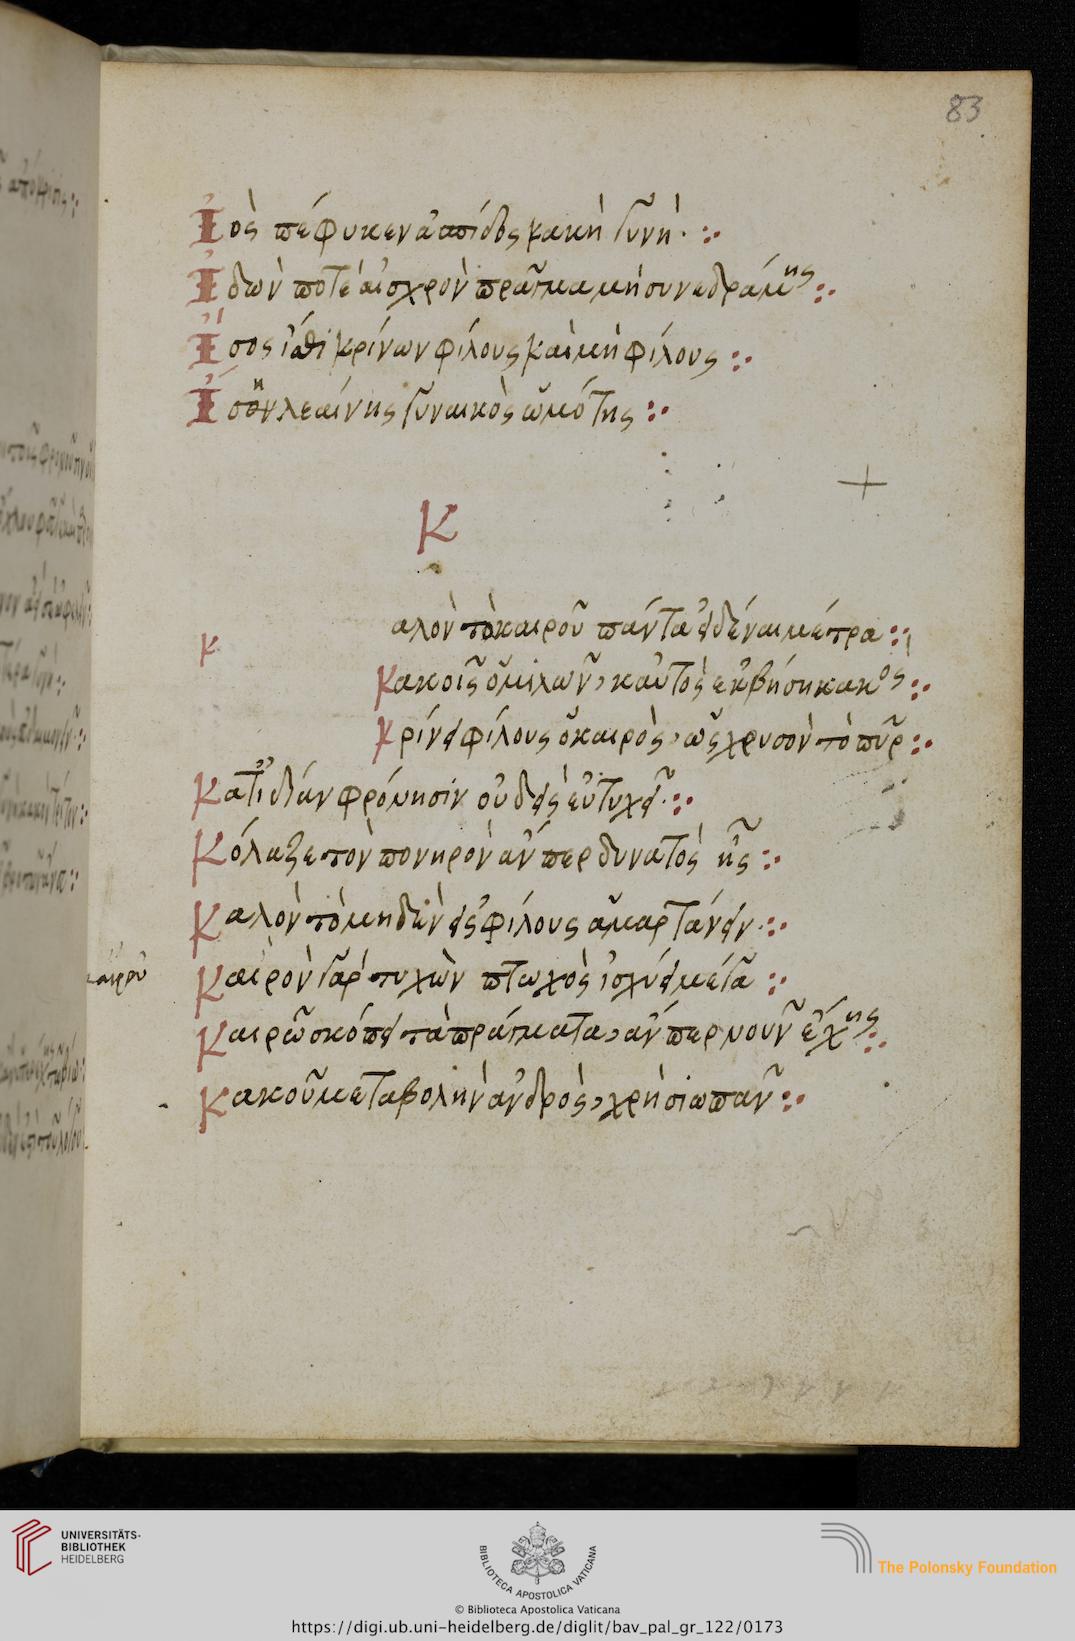 83
Ἰὸς πέφυκεν ἀσπίδος κακὴ γυνή
Ἰδών ποτε αἰσχρὸν πρᾶγμα μὴ συνεδράμης
Ἴσος ἴσθι κρίνων φίλους καὶ μὴ φίλους
Ἴσον λεαίνης γυναικὸς ὠμότης
Κ
αλὸν τὸ καιροῦ πάντα εἰδέναι μέτρα
κ
Κακοῖς ὁμιλῶν, καὐτὸς ἐκβήση κακός
Κρίνει φίλους ὁ καιρὸς, ὡς χρυσὸν τὸ πῦρ
Κατ' ἰδίαν φρόνησιν οὐδεὶς εὐτυχεῖ
Κόλαζε τὸν πονηρὸν ἄν περ δυνατὸς ἦς
Καλὸν τὸ μηδὲν εἰς φίλους ἁμαρτάνειν
καιροῦ
Καιρὸν γὰρ τυχὼν πτωχὸς ἰσχύει μέγα
Καιρῶ σκόπει τὰ πράγματα, ἄν περ νοῦν ἔχης
Κακοῦ μεταβολὴν ἀνδρὸς, χρὴ σιωπᾶν
UNIVERSITÄTS-
BIBLIOTHEK
HEIDELBERG
BIBLIOTECA APOSTOLICA VATICANA
The Polonsky Foundation
© Biblioteca Apostolica Vaticana
https://digi.ub.uni-heidelberg.de/diglit/bav_pal_gr_122/0173